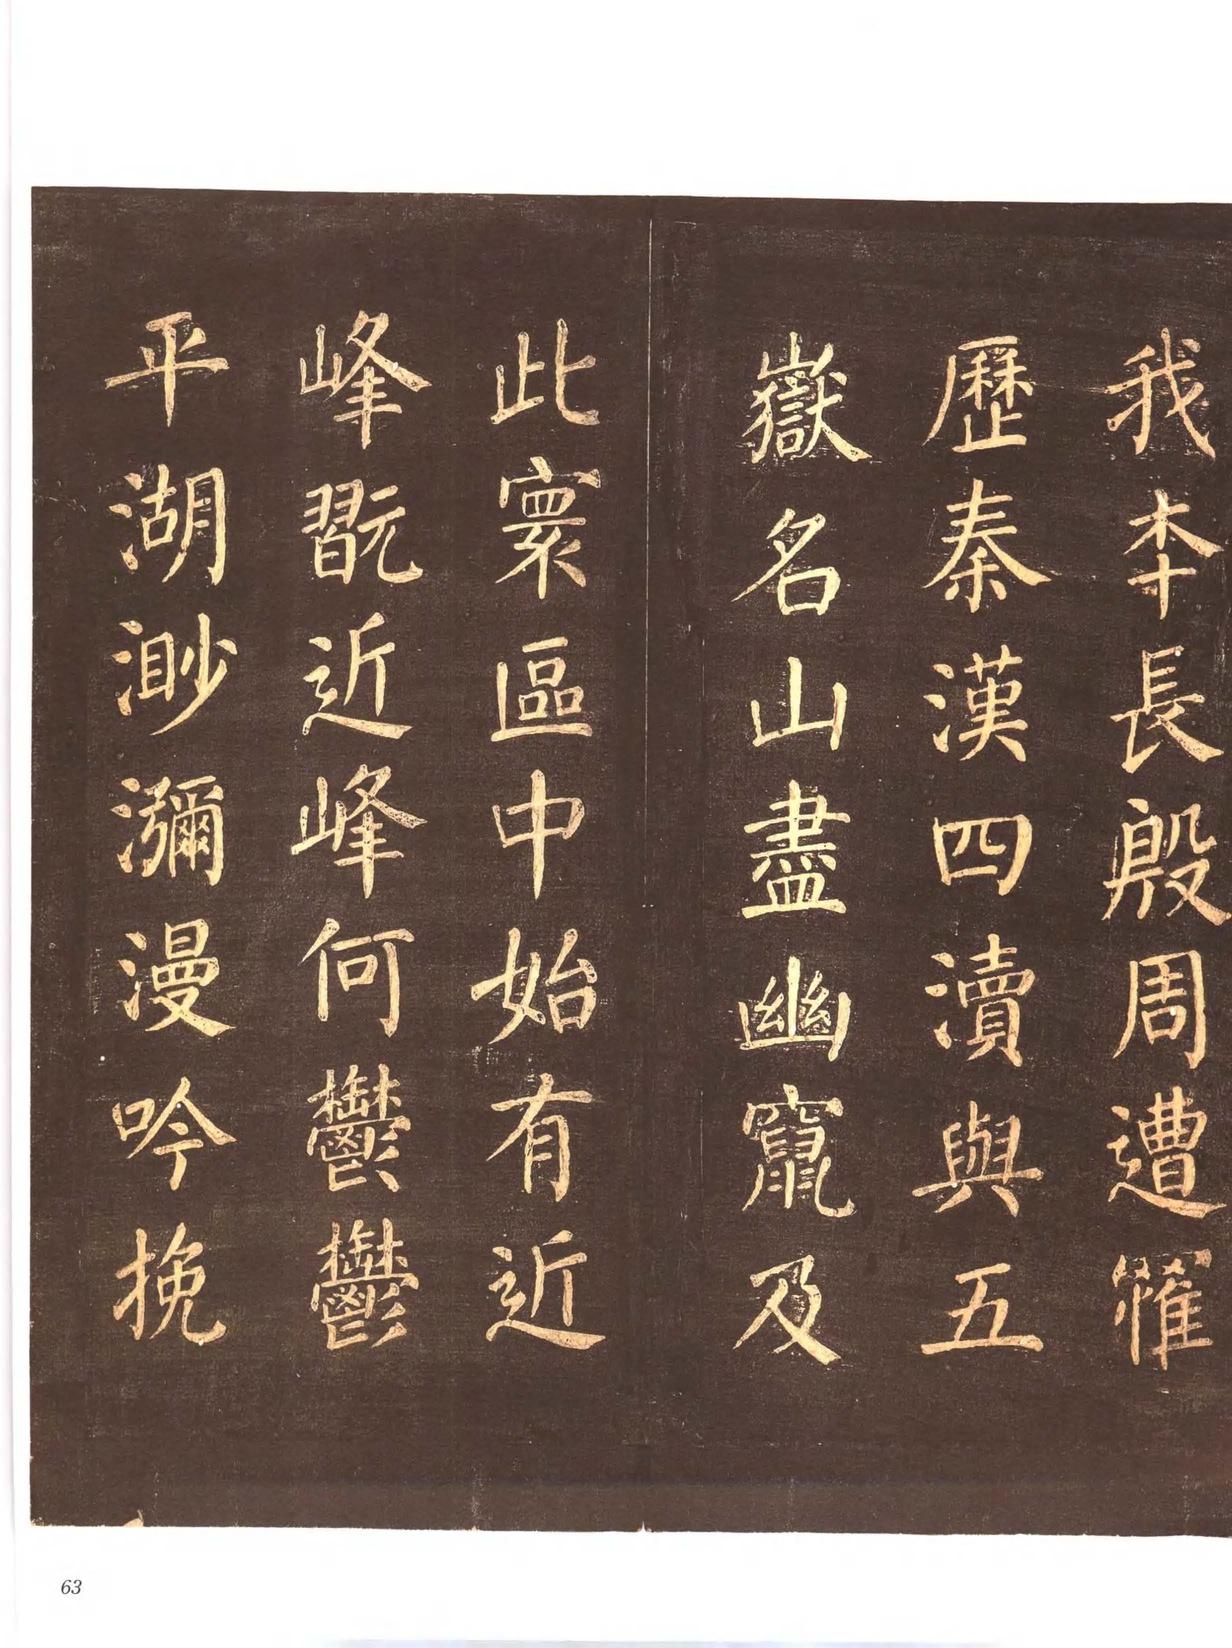 我本長殷周遭罹
歷秦漢四瀆與五
嶽名山盡幽竄及
此寰區中始有近
峰翫近峰何鬱鬱
平湖渺瀰漫吟挽
63